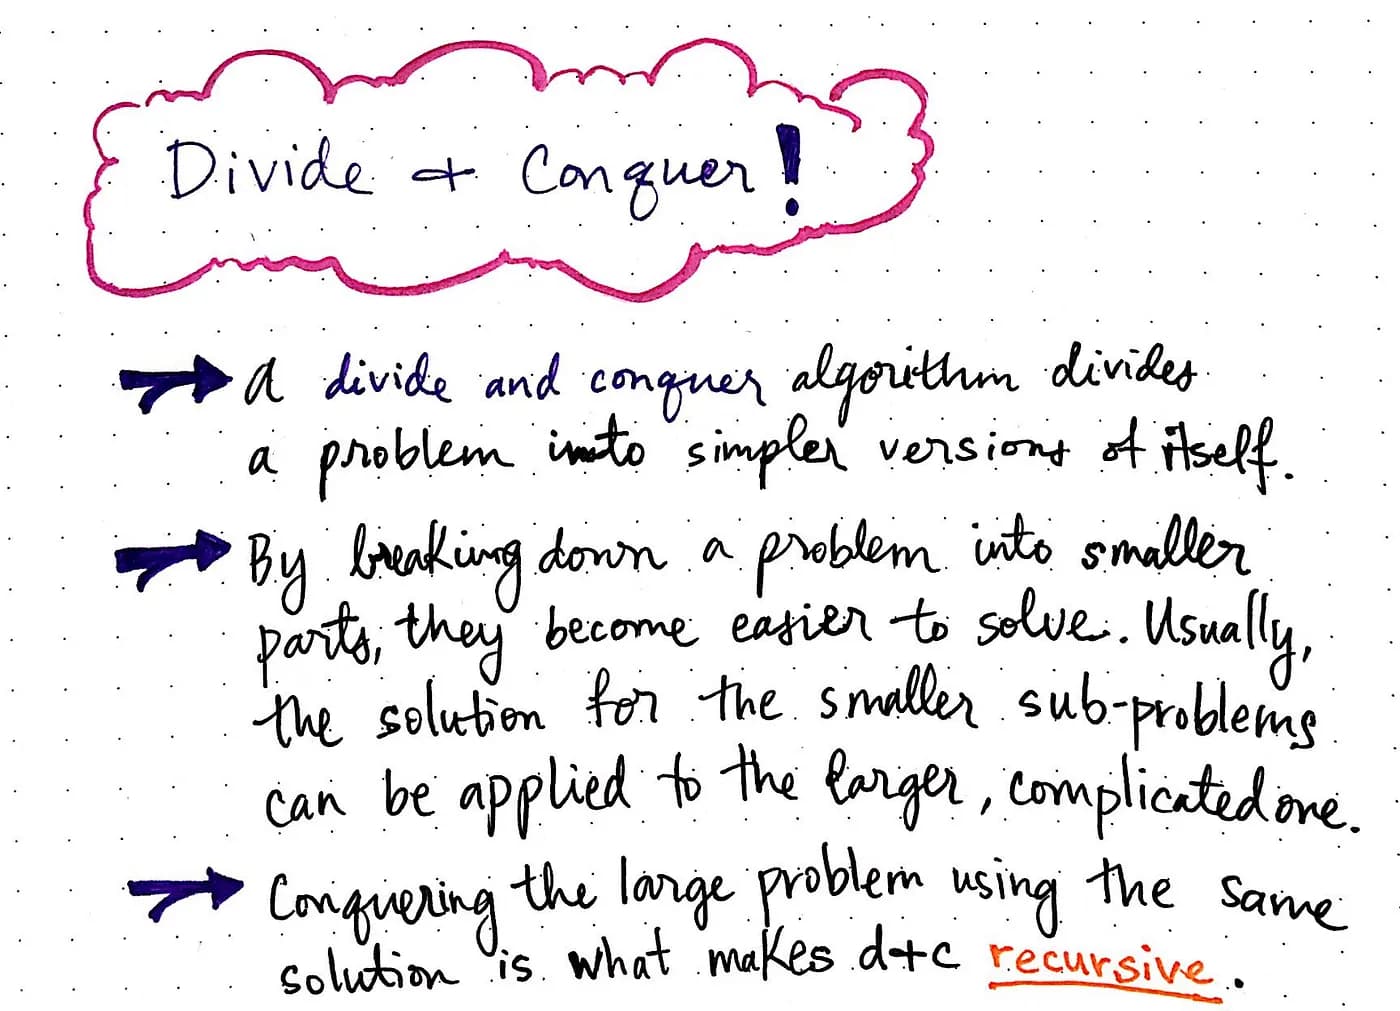 Divide + Conquer!
a divide and conquer algorithm divides
a problem into simpler versions of itself.
By breaking down a problem into smaller
parts, they become easier to solve. Usually,
the solution for the smaller sub-problems
can be applied to the larger, complicated one.
Conquering the large problem using the same
solution is what makes d+c recursive.